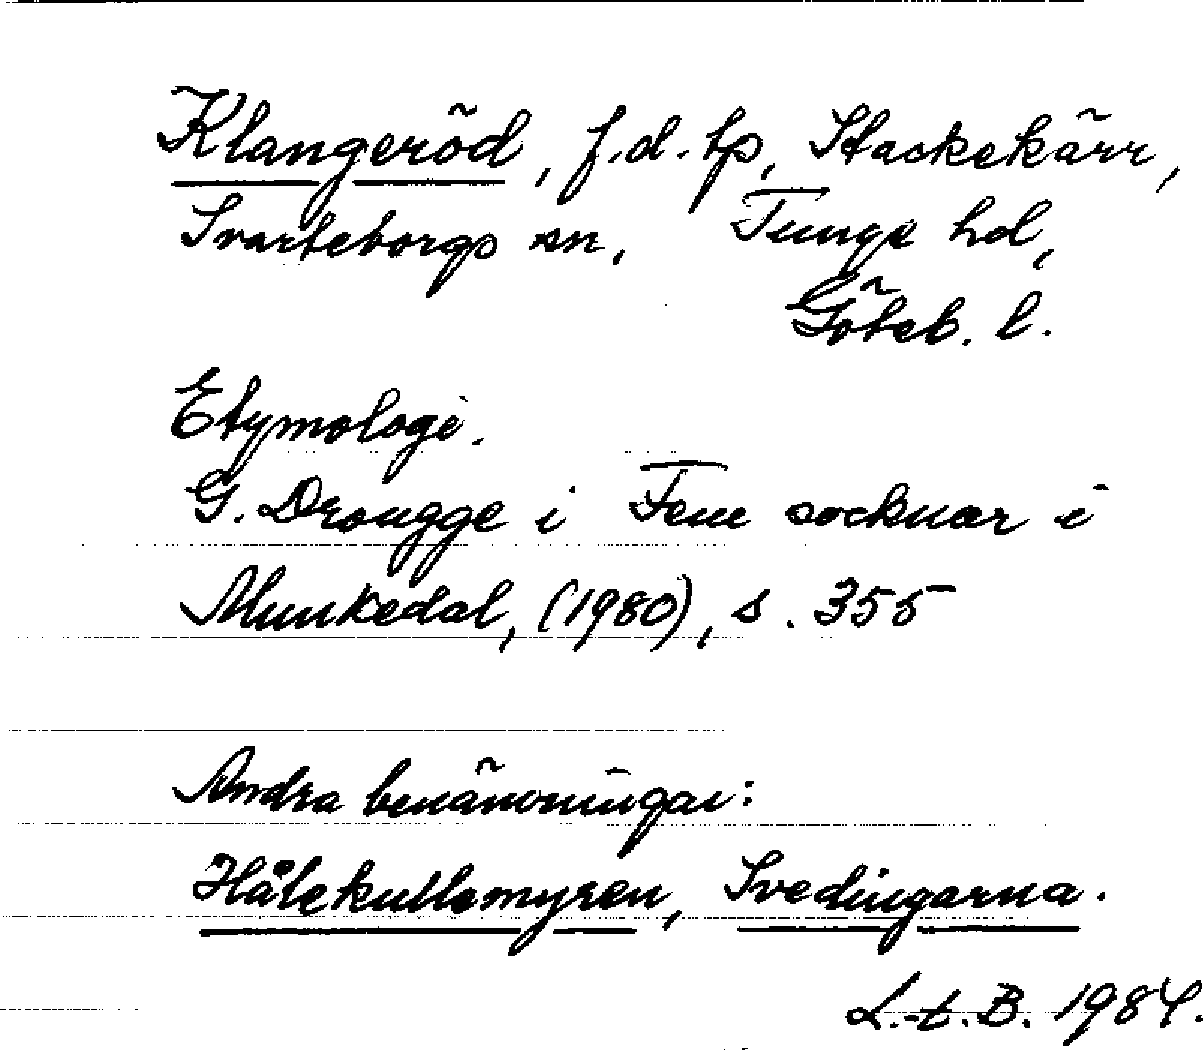 Klangeröd, f.d. tp, Stackekärr,
Svarteborgs sn, Tunge hd,
Göteb. l.
Etymologi.
G. Drougge i Fem socknar i
Munkedal, (1980), s. 355
Andra benämningar:
Hålekullemyren, Svedingarna.
L.-t. B. 1984.